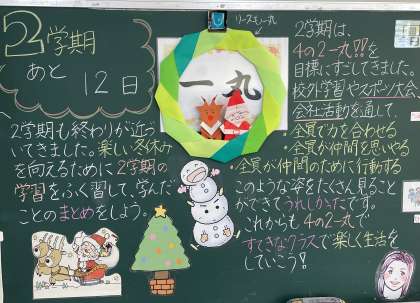 2学期
あと
12日
2学期も終わりが近づ
いてきました。楽しい冬休み
を向えるために2学期の
学習をふく習して、学んだ
ことのまとめをしよう。
リースも一丸
一丸
2学期は、
4の2一丸!!を
目標にすごしてきました。
校外学習やスポーツ大会、
会社活動を通して
・全員で力を合わせる
・全員が仲間を思いやる
・全員が仲間のために行動する
このような姿をたくさん見ること
ができてうれしかったです。
これからも4の2一丸で
すてきなクラスで楽しく生活を
していこう!